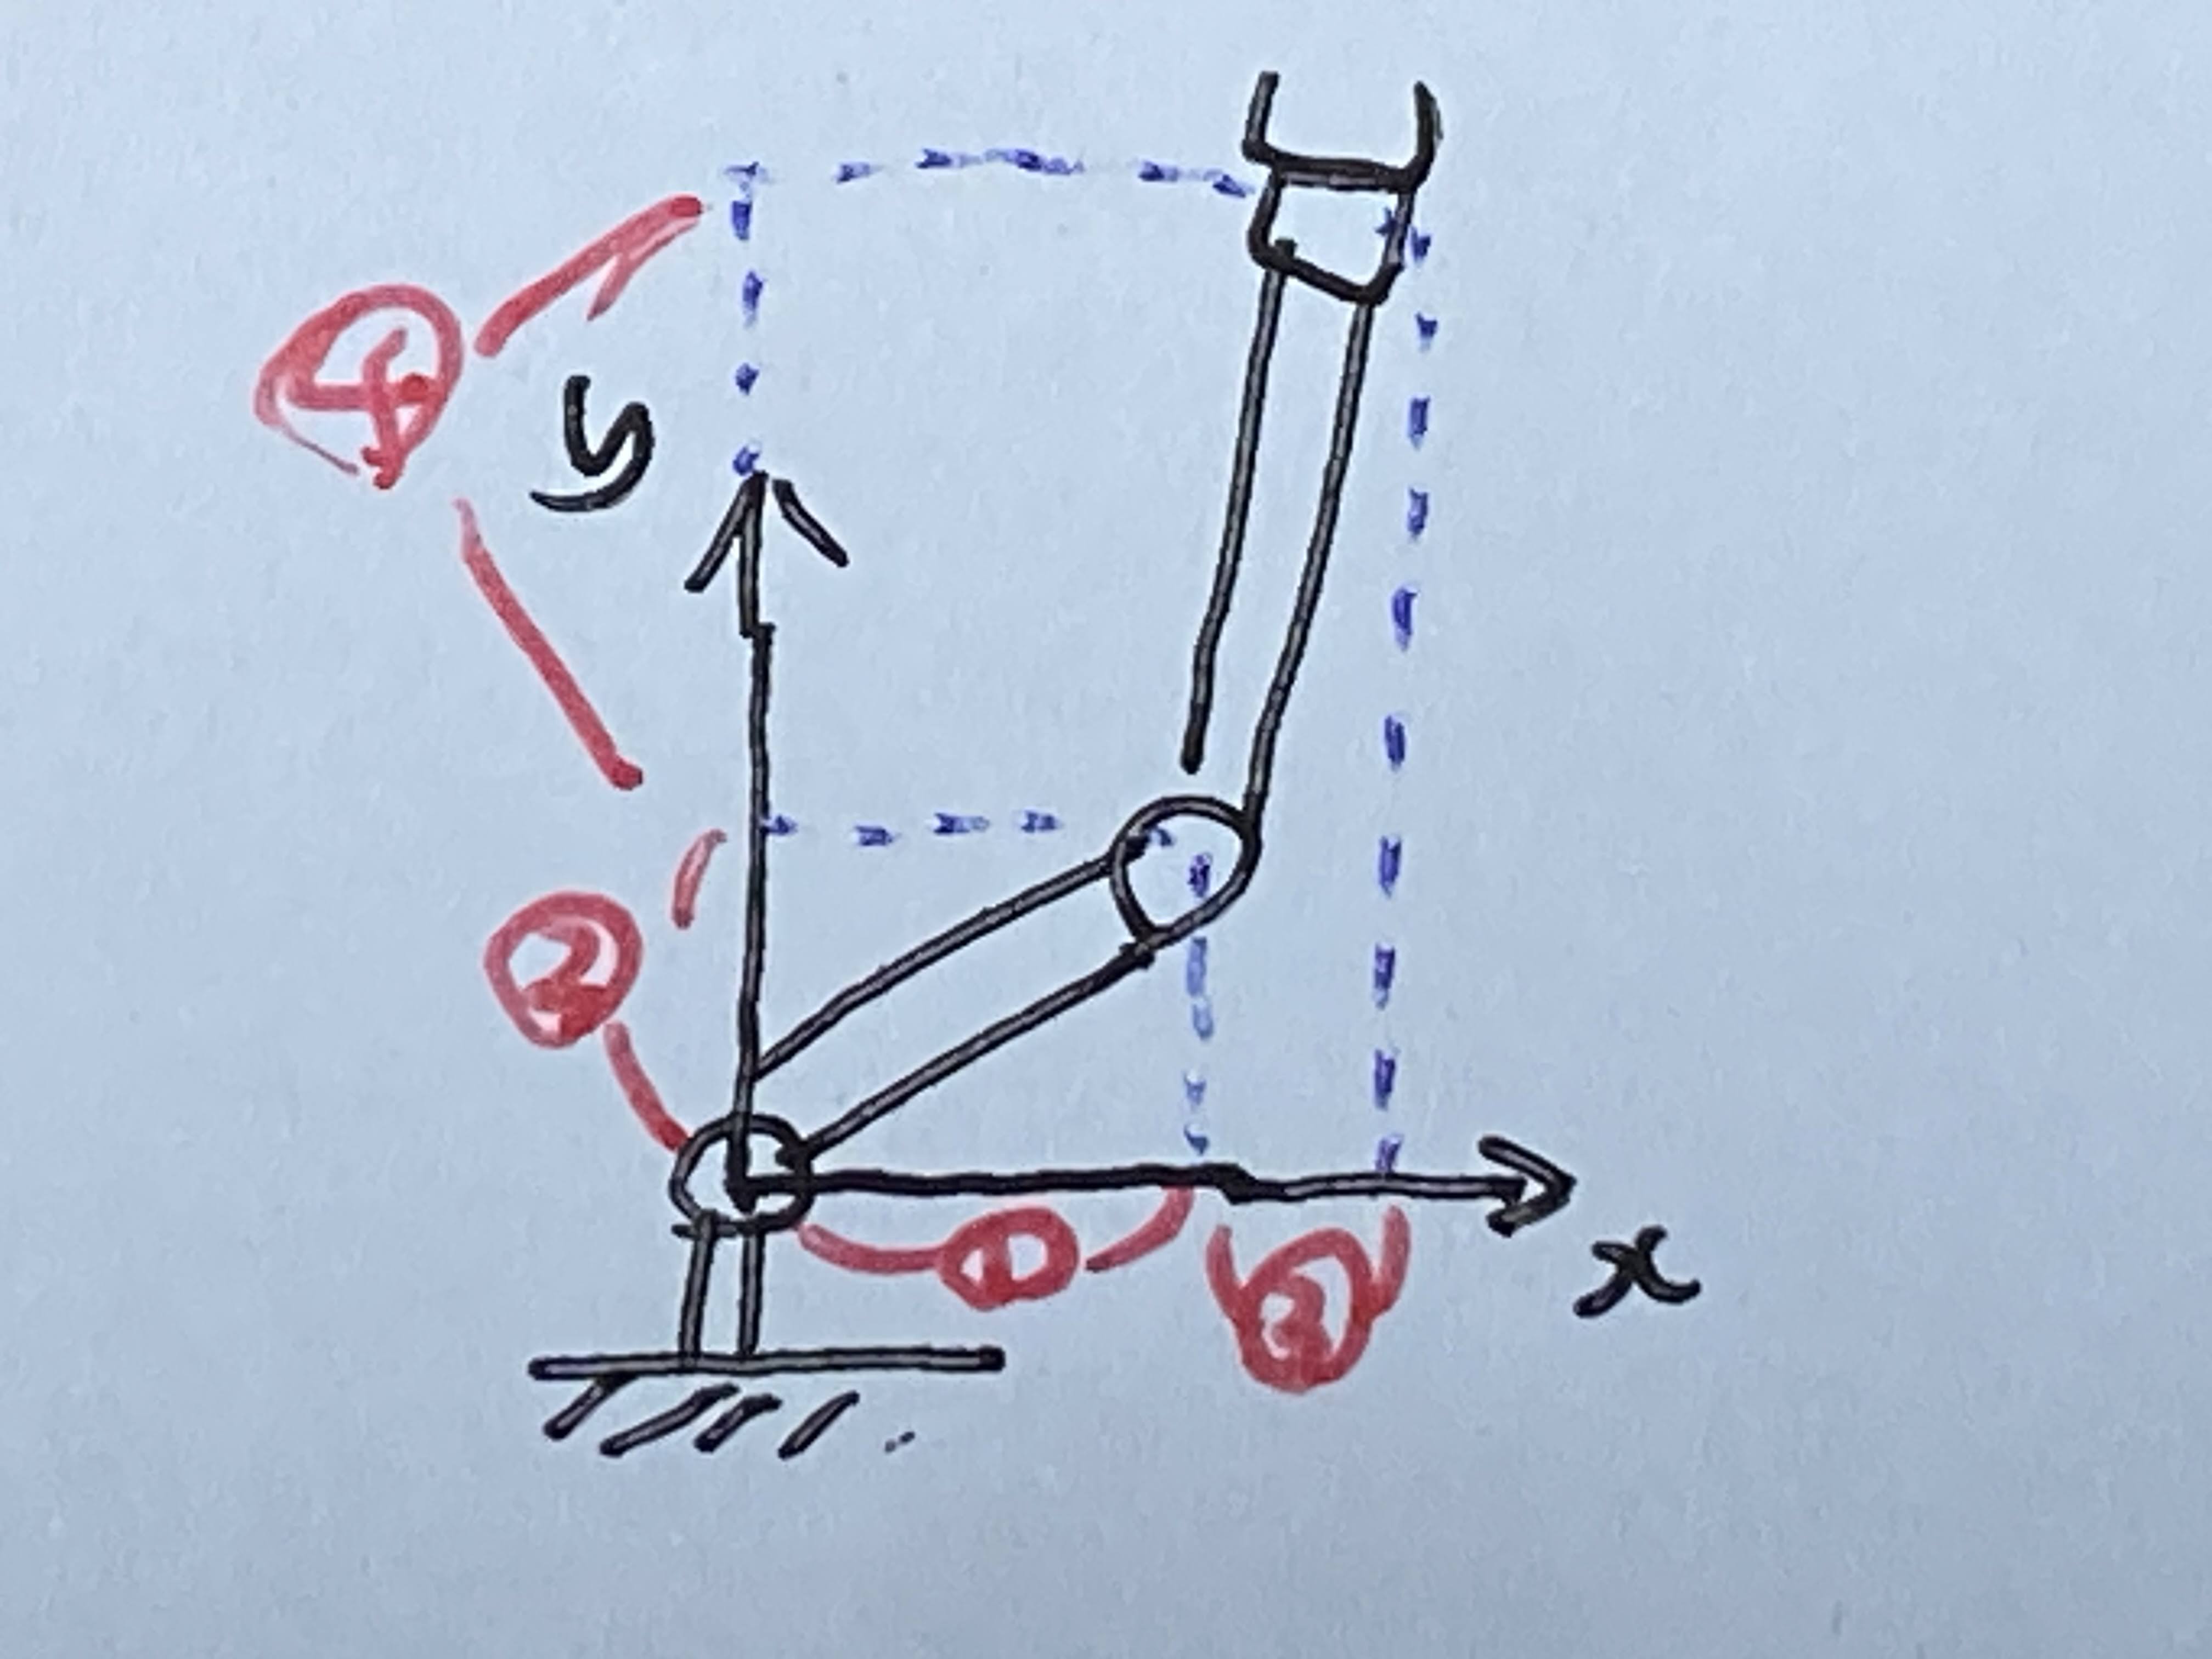 ④
y
②
①
③
x